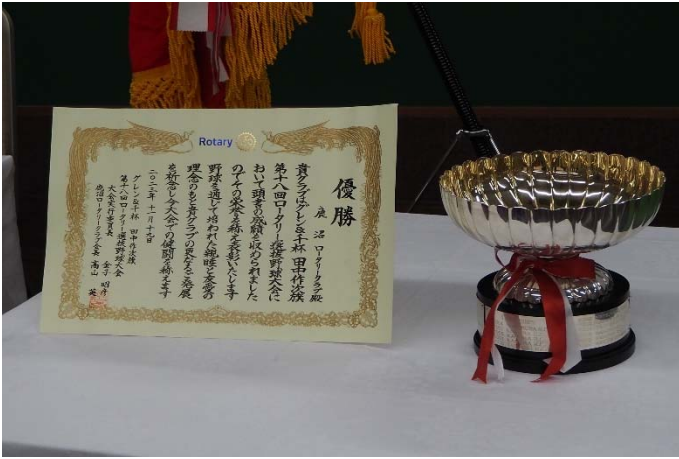 Rotary
優勝
鹿沼 ロータリークラブ殿
貴クラブはグレン&千杯 田中作次旗
第十八回ロータリー選抜野球大会に
おいて頭書の成績を収められました
のでその栄誉を称え表彰いたします
野球を通じて培われた親睦と友愛の
理念のもと貴クラブの更なるご発展
を祈念し今大会での健闘を称えます
二〇二三年十一月十九日
グレン&千杯 田中作次旗
第十八回ロータリー選抜野球大会
大会実行委員長 金子
鹿沼ロータリークラブ会長 高山